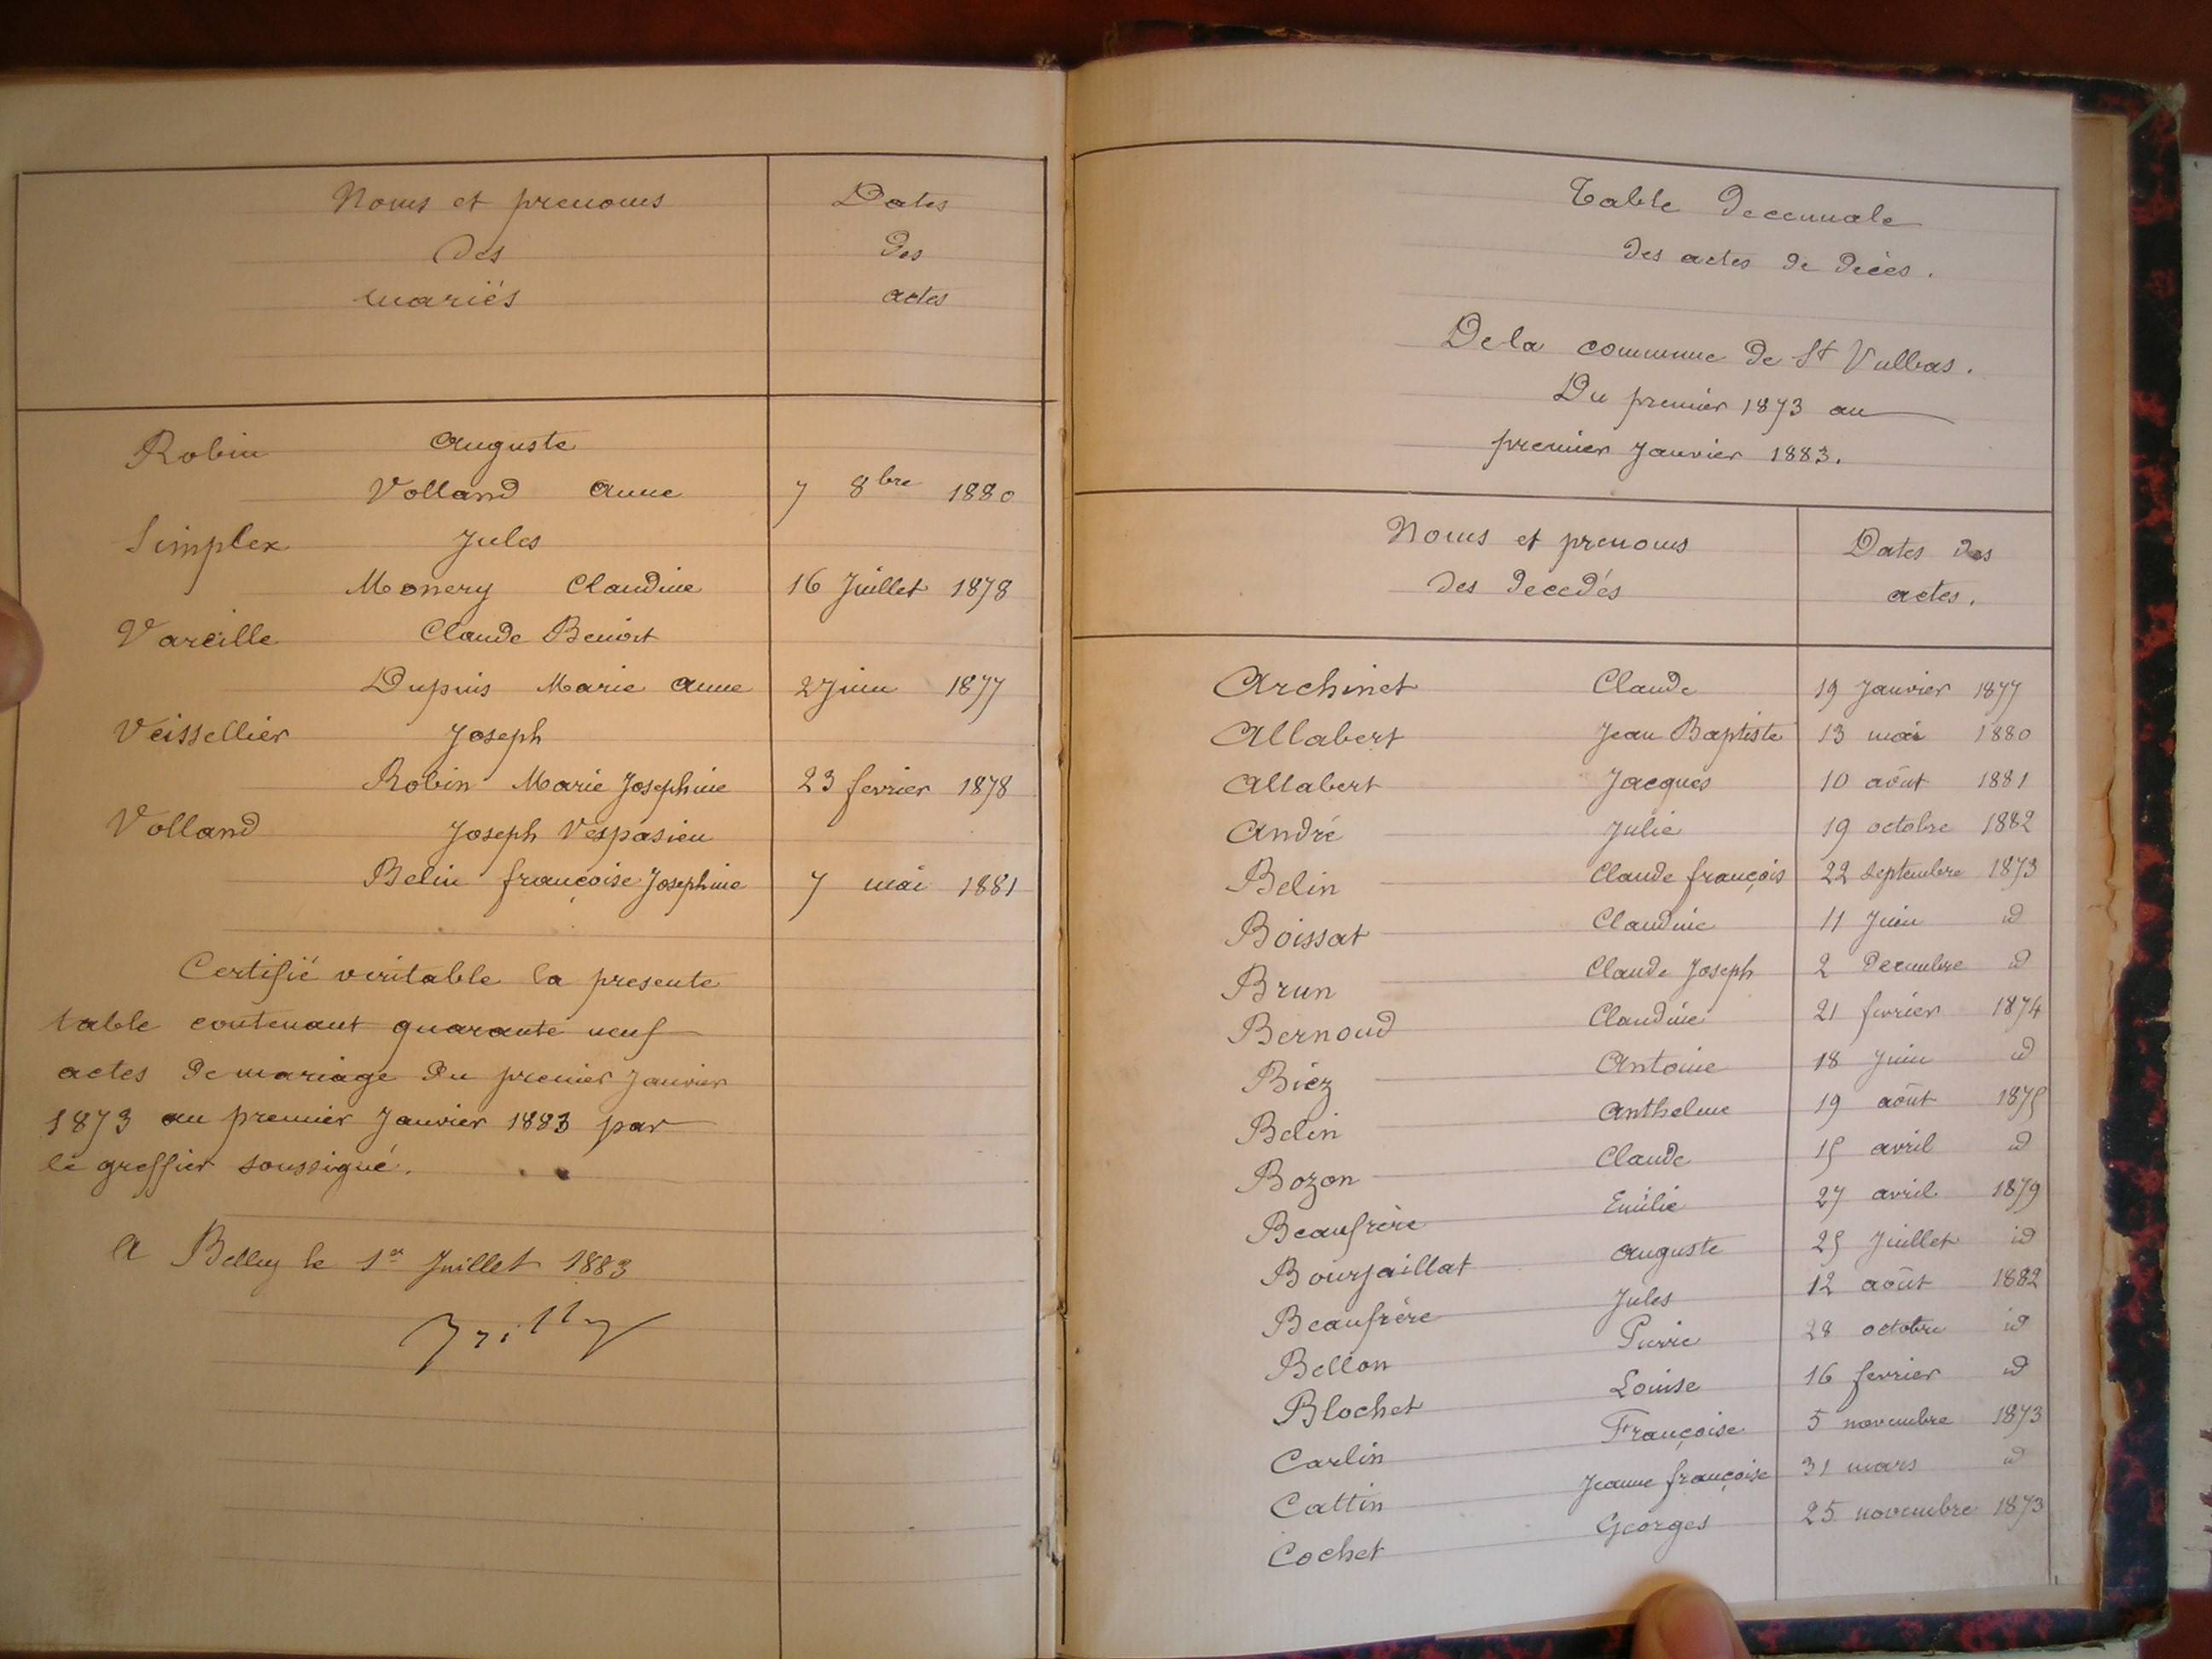 Noms et prenoms
des
mariés
Dates
des
actes
Robin Auguste
Volland Anne 7 8bre 1880
Simplex Jules
Monery Claudine 16 Juillet 1878
Vareille Claude Benoit
Dupuis Marie Anne 2 Juin 1877
Veissellier Joseph
Robin Marie Josephine 23 fevrier 1878
Volland Joseph Vespasien
Belin françoise Josephine 7 mai 1881
Certifié veritable la presente
table contenant quarante neuf
actes de mariage du premier Janvier
1873 au premier Janvier 1883 par
le greffier soussigné.
A Belley le 1er Juillet 1883
Table Decennale
des actes de décès.
De la commune de St Vulbas.
Du premier 1873 au
premier Janvier 1883.
Noms et prenoms
des decedés
Dates des
actes.
Archinet Claude 19 Janvier 1877
Allabert Jean Baptiste 13 mai 1880
Allabert Jacques 10 août 1881
André Julie 19 octobre 1882
Belin Claude françois 22 septembre 1873
Boissat Claudine 11 Juin id
Brun Claude Joseph 2 decembre id
Bernoud Claudine 21 fevrier 1874
Biéz Antoine 18 Juin id
Belin Anthelme 19 août 1875
Bozon Claude 15 avril id
Beaufrère Emilie 27 avril 1879
Bourjaillat Auguste 25 Juillet id
Beaufrère Jules 12 août 1882
Bellon Pierre 28 octobre id
Blochet Louise 16 fevrier id
Carlin Françoise 5 novembre 1873
Cattin Jeanne françoise 31 mars id
Cochet Georges 25 novembre 1873